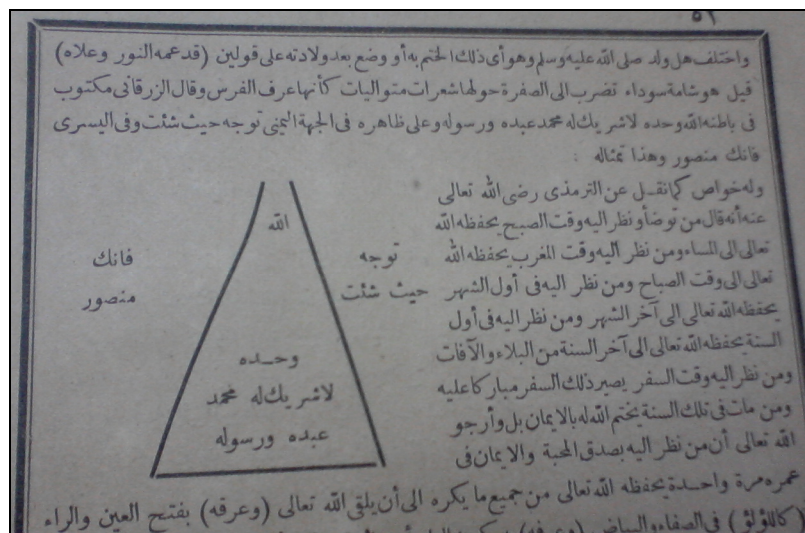 ٥٦
واختلف هل ولد صلى الله عليه وسلم وهو أى ذلك الختم به أو وضع بعد ولادته على قولين (قد عمه النور وعلاه)
قيل هو شامة سوداء تضرب الى الصفرة حولها شعرات متواليات كأنها عرف الفرس وقال الزرقانى مكتوب
فى باطنه الله وحده لا شريك له محمد عبده ورسوله وعلى ظاهره فى الجهة اليمنى توجه حيث شئت وفى اليسرى
فانك منصور وهذا تمثاله :
وله خواص كما نقل عن الترمذى رضى الله تعالى
عنه أنه قال من توضأ ونظر اليه وقت الصبح يحفظه الله
تعالى الى المساء ومن نظر اليه وقت المغرب يحفظه الله
تعالى الى وقت الصباح ومن نظر اليه فى أول الشهر
يحفظه الله تعالى الى آخر الشهر ومن نظر اليه فى أول
السنة يحفظه الله تعالى الى آخر السنة من البلاء والآفات
ومن نظر اليه وقت السفر يصير ذلك السفر مباركا عليه
ومن مات فى تلك السنة يختم الله له بالايمان بل وأرجو
الله تعالى أن من نظر اليه بصدق المحبة والايمان فى
عمره مرة واحدة يحفظه الله تعالى من جميع ما يكره الى أن يلقى الله تعالى (وعرقه) بفتح العين والراء
(كاللؤلؤ) فى الصفاء والبياض (وعرفه)
توجه
حيث شئت
الله
وحده
لا شريك له محمد
عبده ورسوله
فانك
منصور